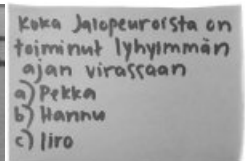 Koka Jalopeuroista on
toiminut lyhyimmän
ajan virassaan
a) Pekka
b) Hannu
c) Iiro